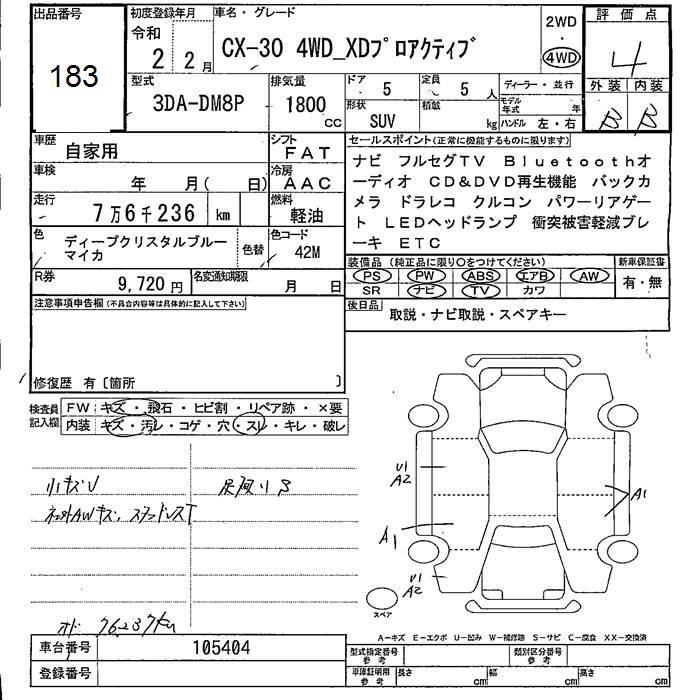 出品番号 初度登録年月 車名・グレード 2WD 評価点
183 令和 2年 2月 CX-30 4WD_XDプロアクティブ 4WD 4
型式 排気量 ドア 5 定員 5人 ディーラー・並行 外装 内装
3DA-DM8P 1800cc 形状 SUV 積載 kg モデル年式 年 ハンドル 左・右 B B
車歴 自家用 シフト FAT セールスポイント(正常に機能するものに限ります)
車検 年 月( 日) 冷房 AAC ナビ フルセグTV Bluetoothオ
走行 7万6千236 km 燃料 軽油 ーディオ CD&DVD再生機能 バックカ
メラ ドラレコ クルコン パワーリアゲー
ト LEDヘッドランプ 衝突被害軽減ブレ
ーキ ETC
色 ディープクリスタルブルーマイカ 色替 色コード 42M
装備品(純正品に限り○をつけてください) 新車保証書
PS PW ABS エアB AW 有・無
SR ナビ TV カワ
R券 9,720円 名変通知期限 月 日
後日品 取説・ナビ取説・スペアキー
注意事項申告欄(不具合内容等は具体的に記入して下さい)
修復歴 有〔箇所 〕
検査員記入欄 FW:キズ・飛石・ヒビ割・リペア跡・×要
内装:キズ・汚レ・コゲ・穴・スレ・キレ・破レ
小キズU
AWキズ、
U1
A2
A1
A1
U1
A2
スペア
オド 76237km
A-キズ E-エクボ U-凹み W-補修跡 S-サビ C-腐食 XX-交換済
車台番号 105404 型式指定番号 参考 類別区分番号 参考
登録番号 車庫証明用 参考 長さ cm 幅 cm 高さ cm